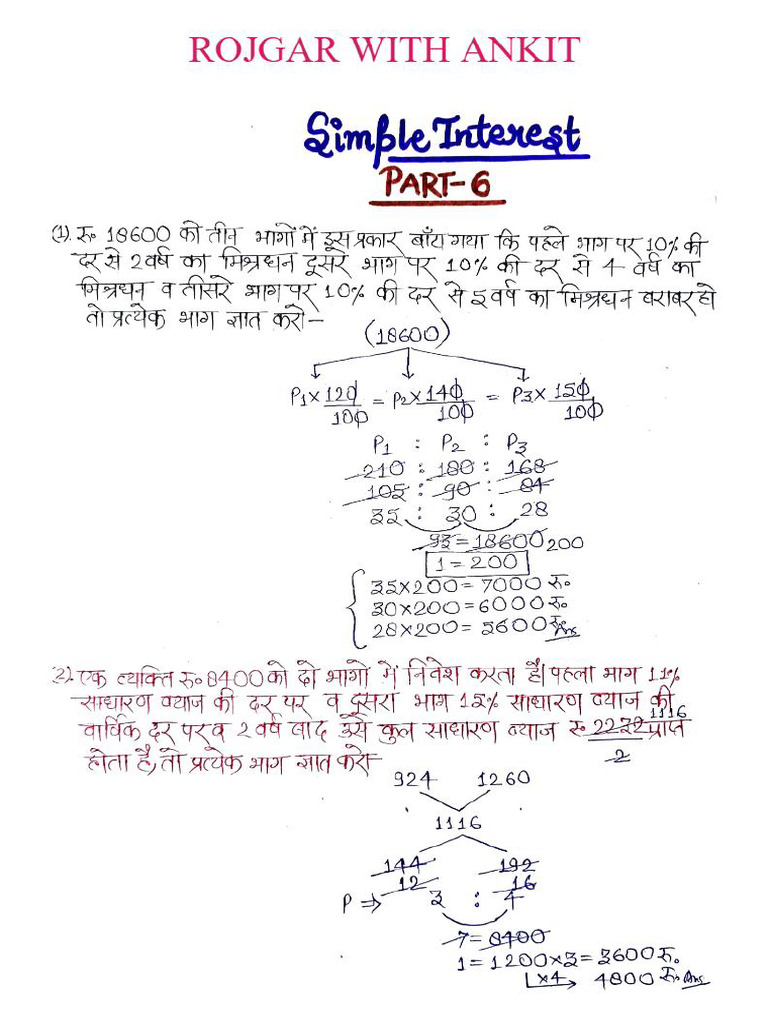 ROJGAR WITH ANKIT
Simple Interest
PART-6
(1). रु. 18600 को तीन भागों में इस प्रकार बाँटा गया कि पहले भाग पर 10% की
दर से 2 वर्ष का मिश्रधन दूसरे भाग पर 10% की दर से 4 वर्ष का
मिश्रधन व तीसरे भाग पर 10% की दर से 5 वर्ष का मिश्रधन बराबर हो
तो प्रत्येक भाग ज्ञात करो-
(18600)
P1 × 120/100 = P2 × 140/100 = P3 × 150/100
P1 : P2 : P3
210 : 180 : 168
105 : 90 : 84
35 : 30 : 28
93 = 18600 200
1 = 200
35×200 = 7000 रु.
30×200 = 6000 रु.
28×200 = 5600 रु. Ans
2). एक व्यक्ति रु. 8400 को दो भागो में निवेश करता है। पहला भाग 11%
साधारण ब्याज की दर पर व दूसरा भाग 15% साधारण ब्याज की
1116
वार्षिक दर पर व 2 वर्ष बाद उसे कुल साधारण ब्याज रु 2232 प्राप्त
2
होता है, तो प्रत्येक भाग ज्ञात करो-
924 1260
1116
144 192
12 16
P ⇒ 3 : 4
7 = 8400
1 = 1200×3 = 3600 रु.
×4 → 4800 रु. Ans